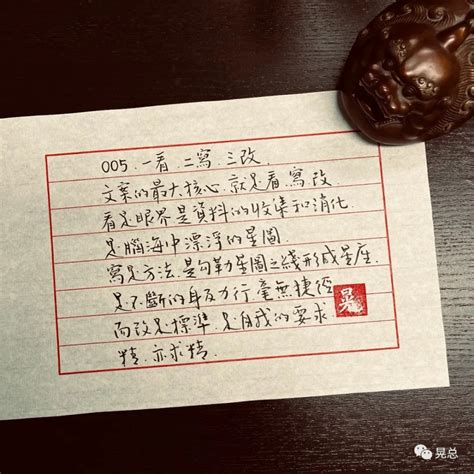 005.一看.二寫.三改.
文案的最大核心.就是看.寫.改.
看是眼界是資料的收集和消化.
是腦海中漂浮的星圖
寫是方法.是勾勒星圖之线形成星座.
是不斷的身反力行.毫無捷徑
而改是標準.是自我的要求
精.亦求精.
晃
晃总